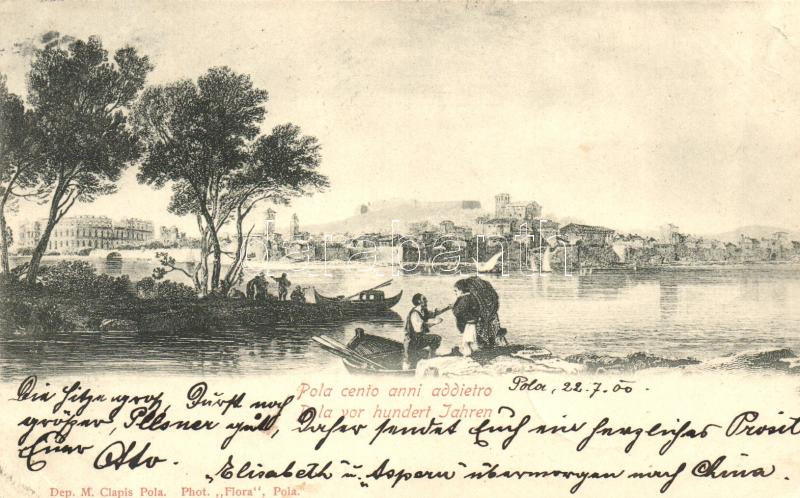 Pola cento anni addietro
Pola vor hundert Jahren
Pola, 22.7.00.
Die Hitze groß, Durst noch
größer, Pilsner gut, Daher sendet Euch ein herzliches Prosit
Euer Otto.
„Elisabeth" u. „Aspern" übermorgen nach China.
Dep. M. Clapis Pola. Phot. „Flora", Pola.
darabanth